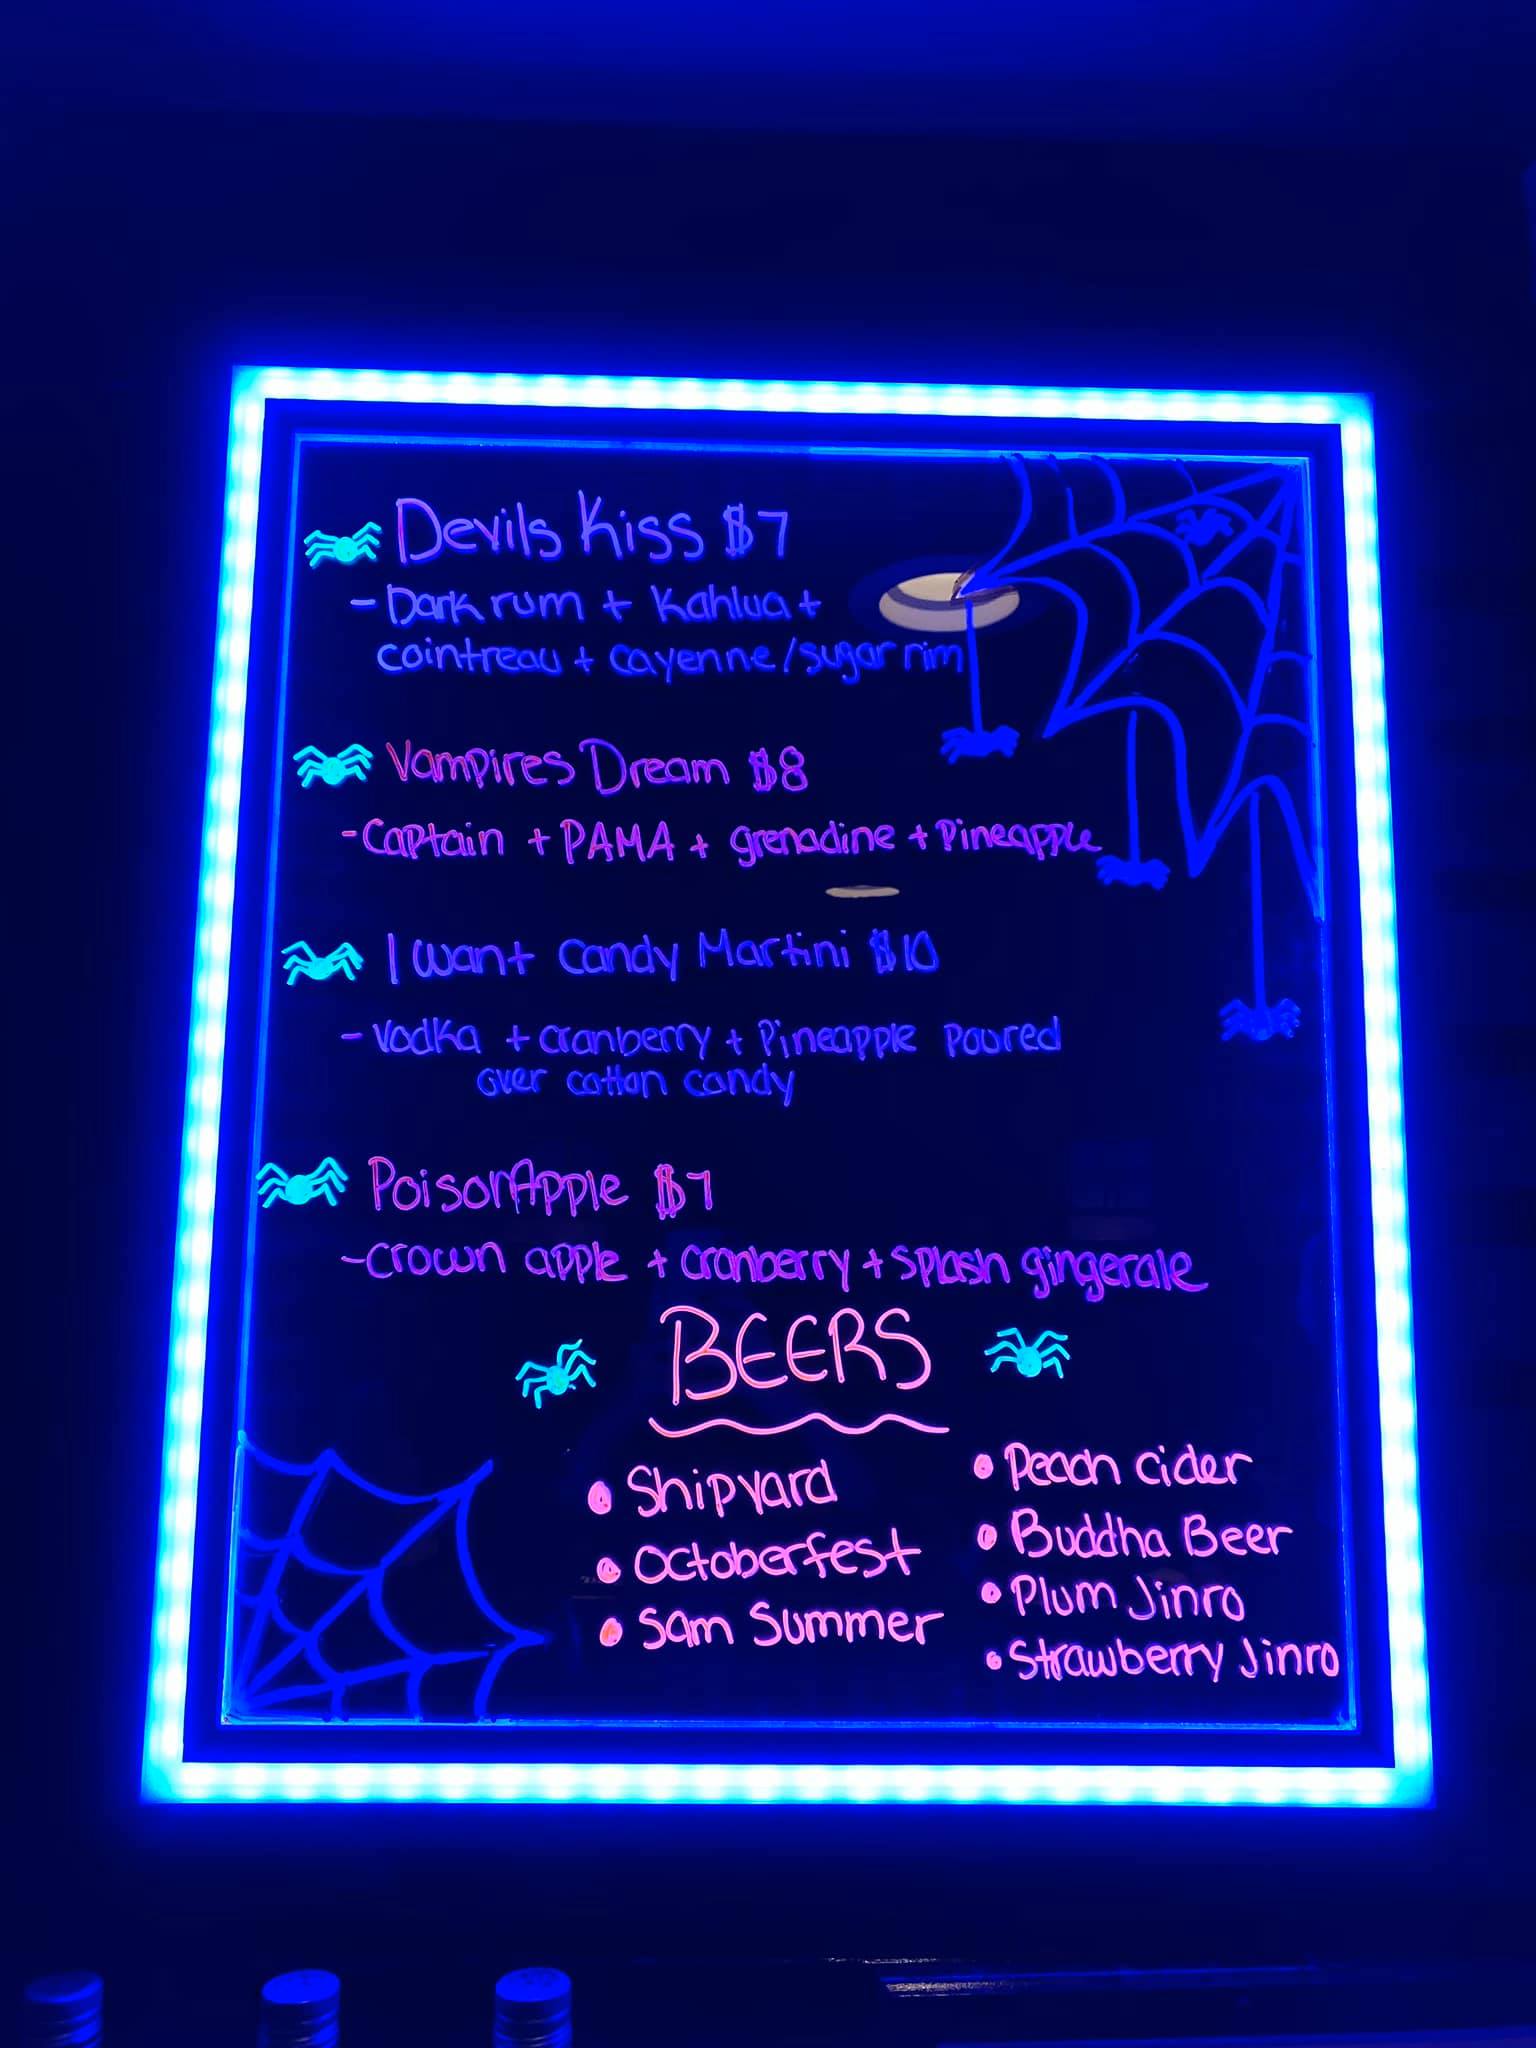 Devils Kiss $7
- Dark rum + Kahlua +
cointreau + cayenne/sugar rim
Vampires Dream $8
- Captain + PAMA + grenadine + Pineapple
I want candy Martini $10
- Vodka + cranberry + Pineapple poured
over cotton candy
Poison Apple $7
- crown apple + cranberry + splash gingerale
BEERS
• Shipyard
• Octoberfest
• Sam Summer
• Peach cider
• Buddha Beer
• Plum Jinro
• Strawberry Jinro